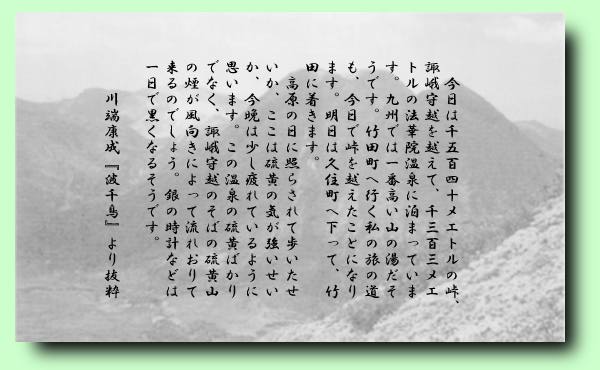 今日は千五百四十メエトルの峠、
諏峨守越を越えて、千三百三メエ
トルの法華院温泉に泊まっていま
す。九州では一番高い山の湯だそ
うです。竹田町へ行く私の旅の道
も、今日で峠を越えたことになり
ます。明日は久住町へ下って、竹
田に着きます。
高原の日に照らされて歩いたせ
いか、ここは硫黄の気が強いせい
か、今晩は少し疲れているように
思います。この温泉の硫黄ばかり
でなく、諏峨守越のそばの硫黄山
の煙が風向きによって流れおりて
来るのでしょう。銀の時計などは
一日で黒くなるそうです。
川端康成『波千鳥』より抜粋